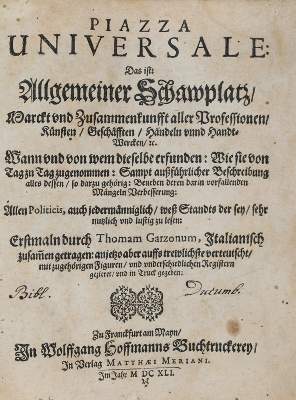 PIAZZA
UNIVERSALE:
Das ist:
Allgemeiner Schawplatz/
Marckt vnd Zusammenkunfft aller Professionen/
Künsten/ Geschäfften/ Händeln vnnd Handt-
Wercken/ ec.
Wann vnd von wem dieselbe erfunden: Wie sie von
Tag zu Tag zugenommen: Sampt außführlicher Beschreibung
alles dessen/ so darzu gehörig: Beneben deren darin vorfallenden
Mängeln Verbesserung:
Allen Politicis, auch jedermänniglich/ weß Standts der sey/ sehr
nutzlich vnd lustig zu lesen:
Erstmaln durch Thomam Garzonum, Italianisch
zusam̃en getragen: anjetzo aber auffs trewlichste verteutscht/
mit zugehörigen Figuren/ vnd vnderschiedlichen Registern
gezieret/ vnd in Truck gegeben:
Bibl. Ducumb.
Zu Franckfurt am Mayn/
In Wolffgang Hoffmanns Buchtruckerey/
In Verlag MATTHÆI MERIANI.
Im Jahr M DC XLI.